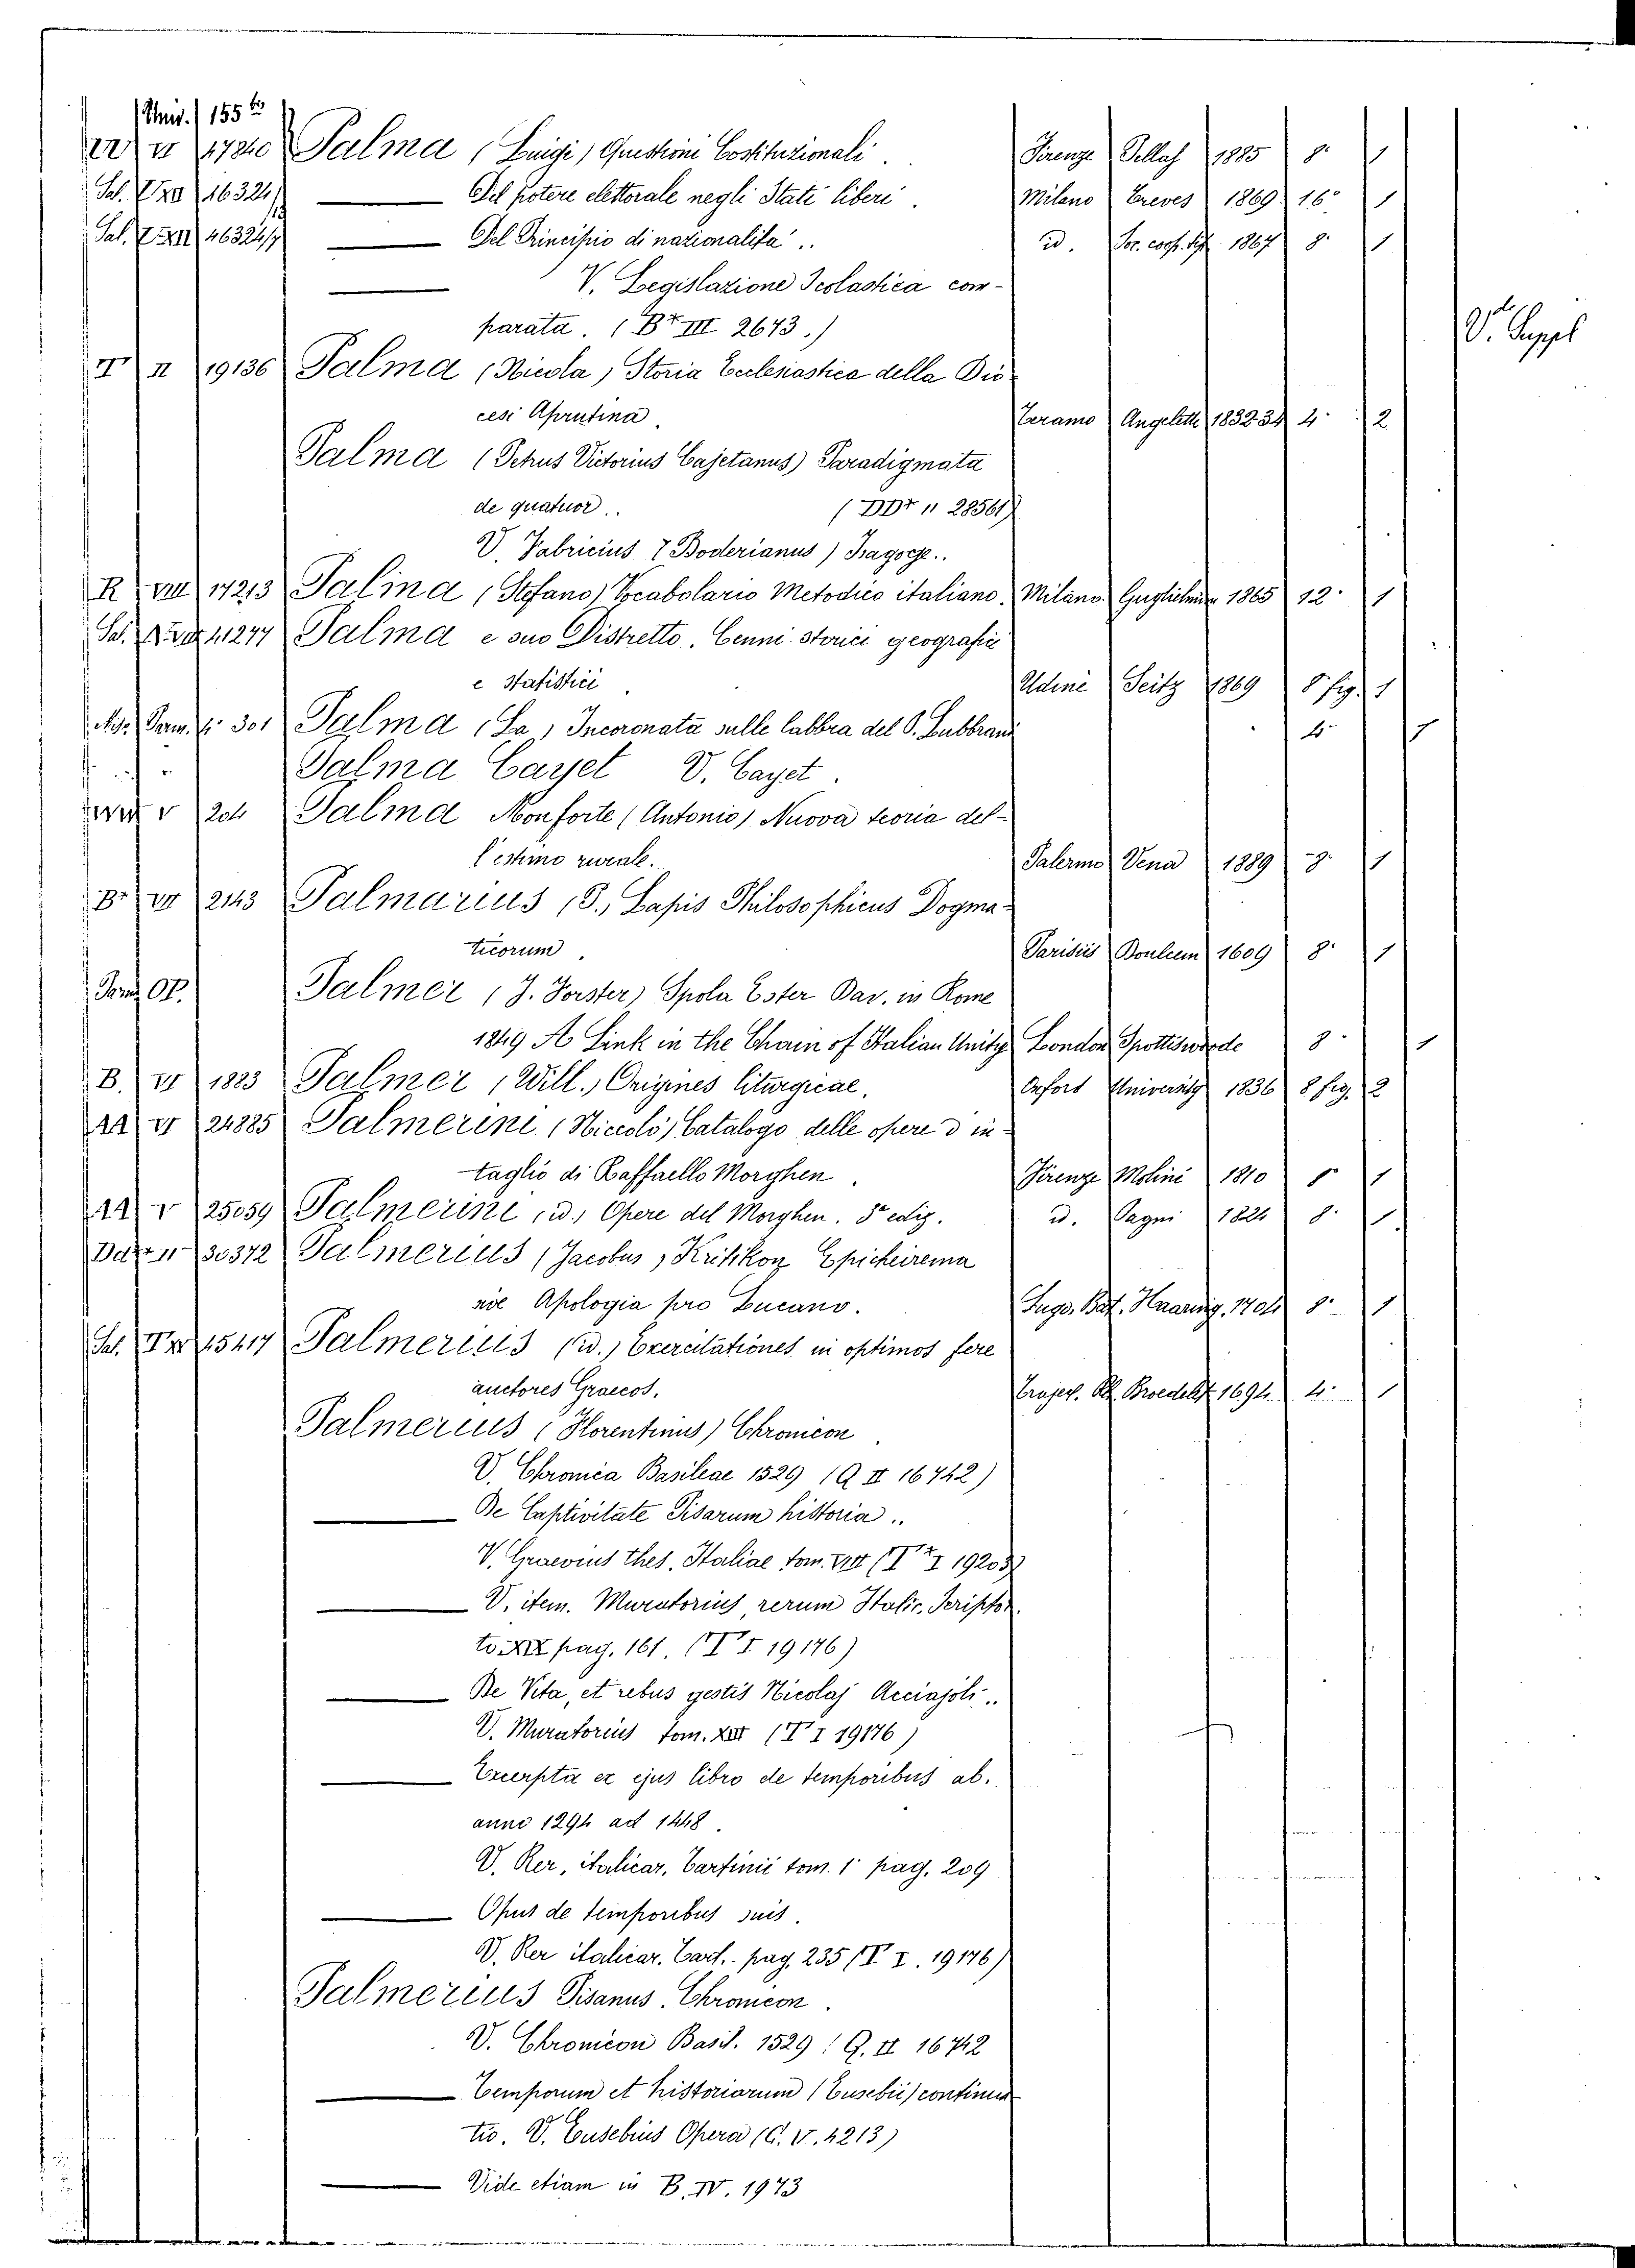 155 bis
VI 17340 Palma (Luigi) Questioni Costituzionali. Firenze Pellas 1885 8° 1
Sal. 46324/ — Del potere elettorale negli Stati liberi. Milano Treves 1869 16° 1
Sal. 46324/7 — Del Principio di nazionalità.. id. 1867 8° 1
— V. Legislazione Scolastica com-
parata. (Br III 2643.)
V. Suppl
T II 19136 Palma (Nicola) Storia Ecclesiastica della Dio-
cesi Aprutina. Teramo Angeletti 1832-34 4° 2
Palma (Petrus Victorius Cajetanus) Paradigmata
de quatuor.. (DDr II 28561)
V. Fabricius (Boderianus) Isagoge..
R VIII 17213 Palma (Stefano) Vocabolario Metodico italiano. Milano. 1865 12° 1
Sal. 41277 Palma e suo Distretto. Cenni storici geografici
e statistici. Udine Seitz 1869 8° fig. 1
301 Palma (La) Incoronata sulle labbra del S. Lubbrani 4° 1
Palma Cayet V. Cayet.
V 204 Palma Monforte (Antonio) Nuova teoria del-
l'estimo rurale. Palermo Vena 1889 8° 1
Br VII 2143 Palmarius (P.) Lapis Philosophicus Dogma-
ticorum. Parisiis 1609 8° 1
OP. Palmer (J. Forster) Spola Ester Pav. in Rome
1849 A Link in the Chain of Italian Unity London Spottiswoode 8° 1
B. VI 1883 Palmer (Will.) Origines liturgicae. Oxford University 1836 8 fig. 2
AA VI 24885 Palmerini (Niccolò) Catalogo delle opere d'in-
taglio di Raffaello Morghen. Firenze Molini 1810 8° 1
AA V 25059 Palmerini (id.) Opere del Morghen. 3ª ediz. id. Pagni 1824 8° 1
II 30372 Palmerius (Jacobus) Kritikon Epicheirema
sive Apologia pro Lucano. Lugd. Bat. Haaring. 1704 8° 1
Sal. 15417 Palmerius (id.) Exercitationes in optimos fere
auctores Graecos. Traject. Rh. Broedelet 1694 4° 1
Palmerius (Florentinus) Chronicon.
V. Chronica Basileae 1529 (Q II 16742)
— De Captivitate Pisarum historia..
V. Graevius thes. Italiae tom. VIII (Tr I 19203)
— V. item. Muratorius rerum Italic. Scriptor.
to. XIX pag. 161. (T I 19176)
— De Vita, et rebus gestis Nicolaj Acciajoli..
V. Muratorius tom. XIII (T I 19176)
— Excerpta ex ejus libro de temporibus ab.
anno 1294 ad 1448.
V. Rer. italicar. Tartinii tom. 1° pag. 209
— Opus de temporibus suis.
V. Rer italicar. Tart. pag. 235 (T I. 19176)
Palmerius Pisanus. Chronicon.
V. Chronicon Basil. 1529 (Q. II 16742
— Temporum et historiarum (Eusebii) continua-
tio. V. Eusebius Opera (C. V. 4213)
— Vide etiam in B. IV. 1973